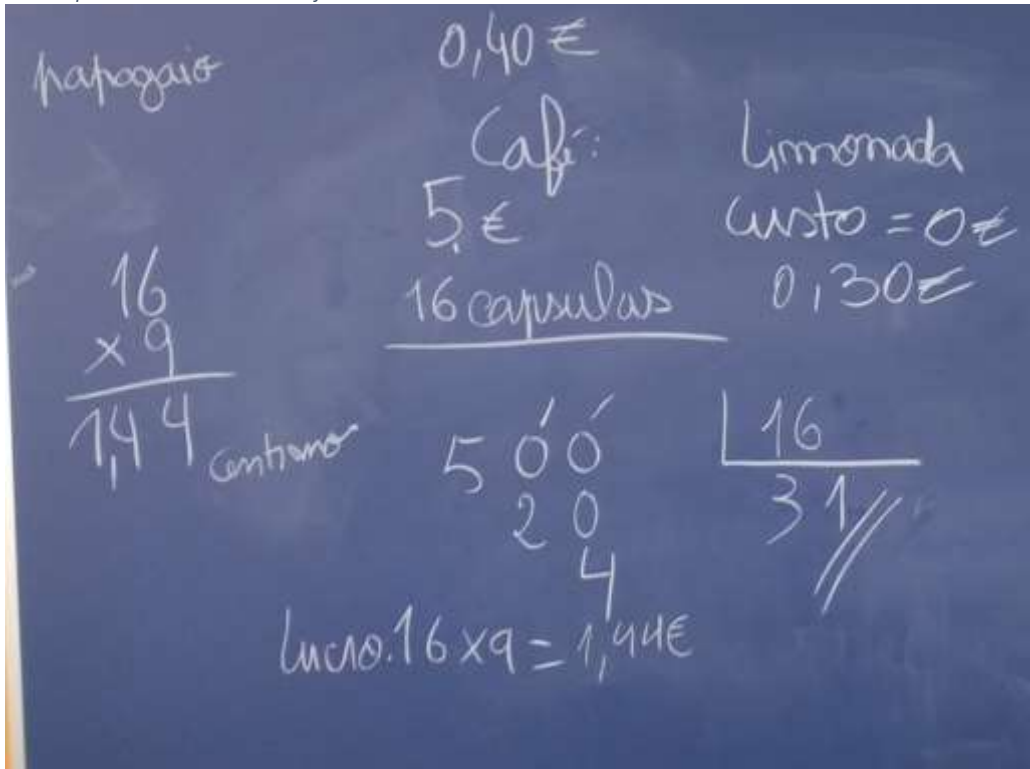 papagaio
0,40 €
Café:
5,€
16 capsulas
Limonada
custo = 0€
0,30€
16
x 9
1,44
500
20
4
16
31
Lucro. 16 x 9 = 1,44€